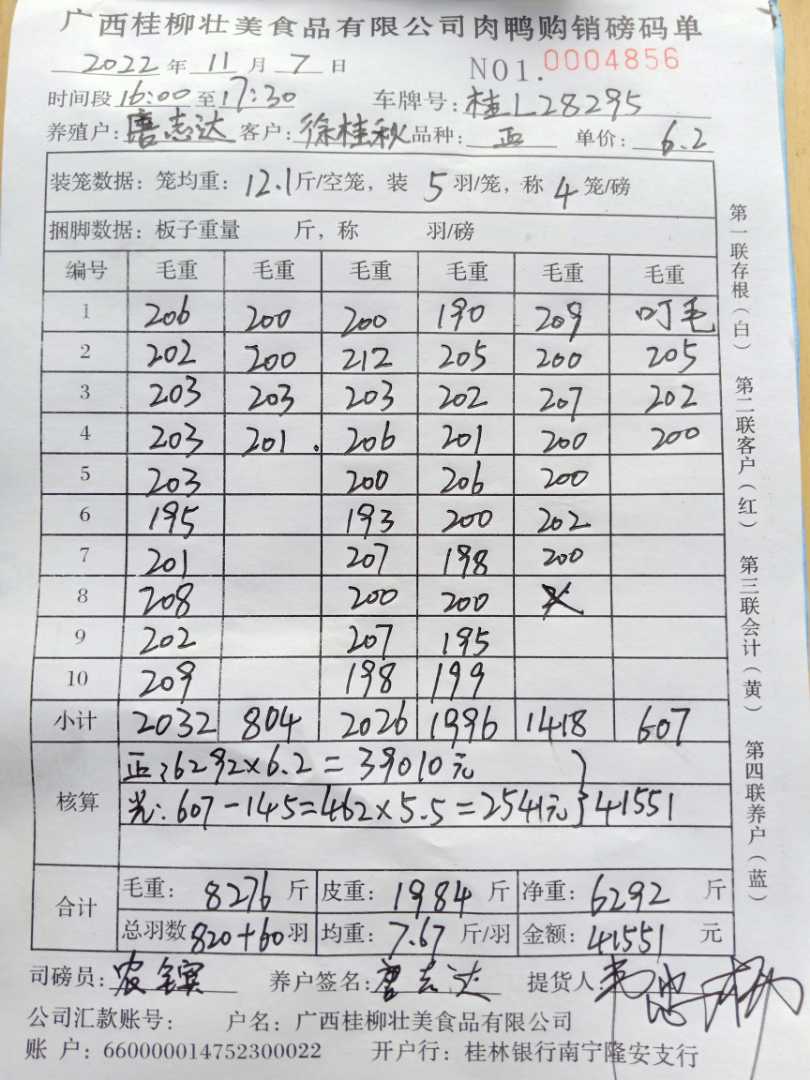 广西桂柳壮美食品有限公司肉鸭购销磅码单
2022 年 11 月 7 日 NO1. 0004856
时间段 16:00 至 17:30 车牌号: 桂L28295
养殖户: 唐志达 客户: 徐桂秋 品种: 正 单价: 6.2
装笼数据: 笼均重: 12.1 斤/空笼, 装 5 羽/笼, 称 4 笼/磅
捆脚数据: 板子重量 斤, 称 羽/磅
编号 毛重 毛重 毛重 毛重 毛重 毛重
1 206 200 200 190 209 叮毛
2 202 200 212 205 200 205
3 203 203 203 202 207 202
4 203 201. 206 201 200 200
5 203 200 206 200
6 195 193 200 202
7 201 207 198 200
8 208 200 200 X
9 202 207 195
10 209 198 199
小计 2032 804 2026 1996 1418 607
核算
正:6292×6.2=39010元
光:607-145=462×5.5=2541元 } 41551
合计 毛重: 8276 斤 皮重: 1984 斤 净重: 6292 斤
总羽数 820+60 羽 均重: 7.67 斤/羽 金额: 41551 元
司磅员: 农 养户签名: 唐志达 提货人:
公司汇款账号: 户名: 广西桂柳壮美食品有限公司
账 户: 660000014752300022 开户行: 桂林银行南宁隆安支行
第一联存根(白) 第二联客户(红) 第三联会计(黄) 第四联养户(蓝)